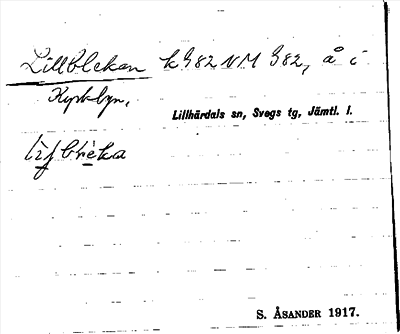 Lillbleken k 982 NM 982, å i
Kyrkbyn,
Lillhärdals sn, Svegs tg, Jämtl. l.
S. ÅSANDER 1917.